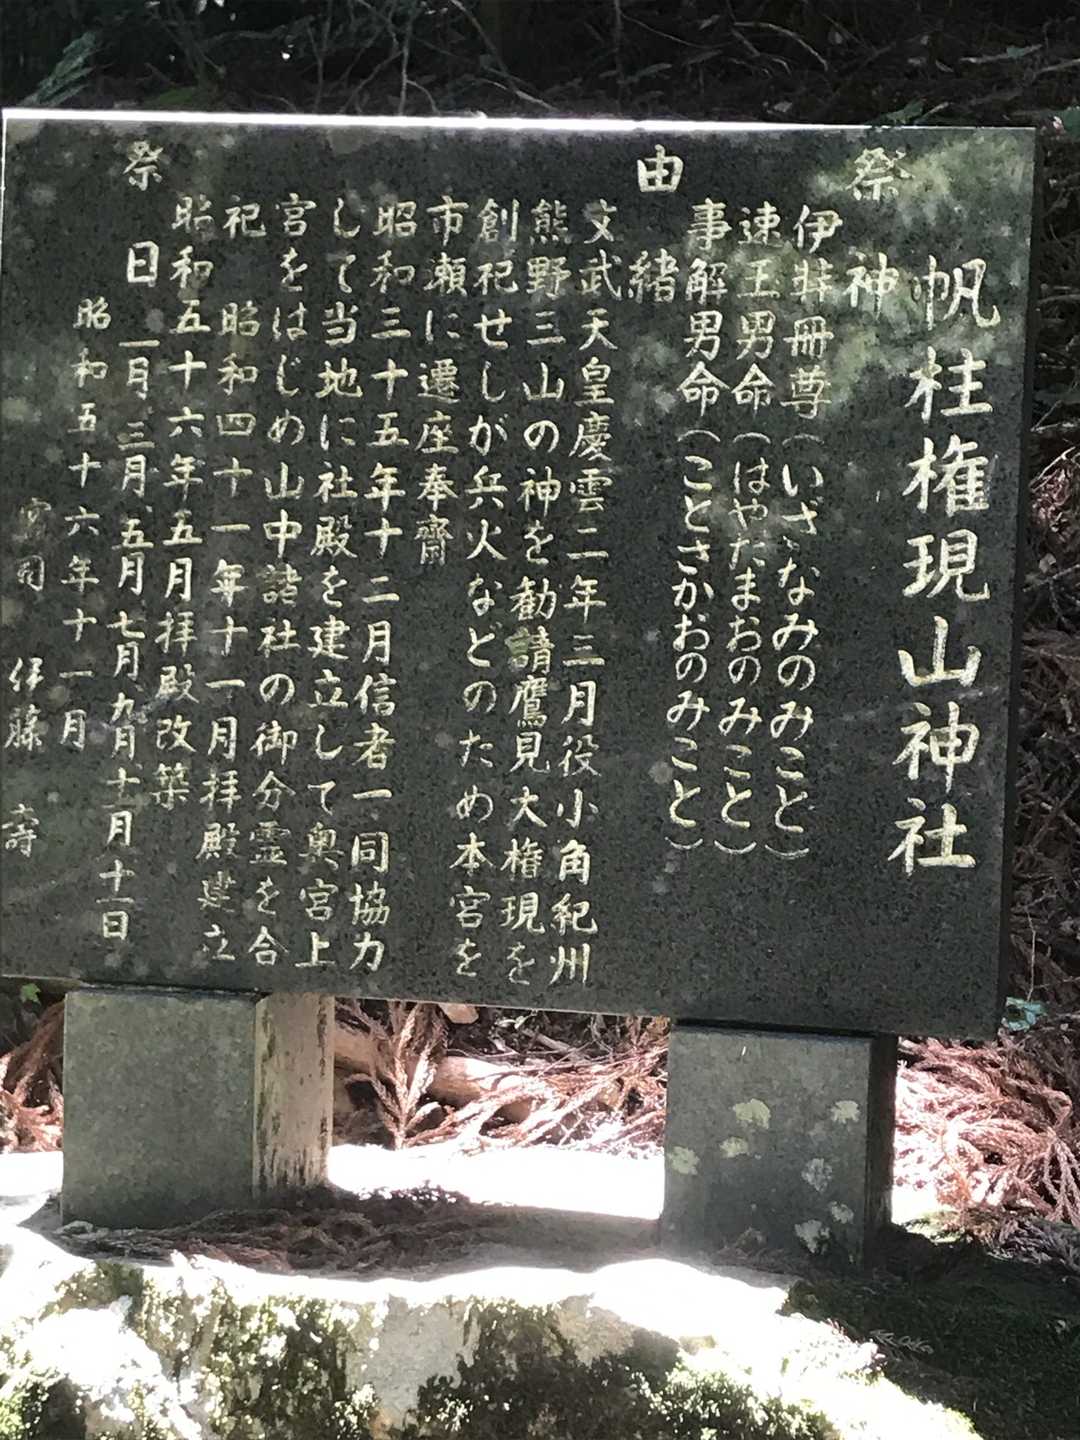 帆柱権現山神社
祭神
伊弉冊尊（いざなみのみこと）
速玉男命（はやたまおのみこと）
事解男命（ことさかおのみこと）
由緒
文武天皇慶雲二年三月役小角紀州
熊野三山の神を勧請鷹見大権現を
創祀せしが兵火などのため本宮を
市瀬に遷座奉齋
昭和三十五年十二月信者一同協力
して当地に社殿を建立して奥宮上
宮をはじめ山中諸社の御分霊を合
祀　昭和四十一年十一月拝殿建立
昭和五十六年五月拝殿改築
祭日　一月、三月、五月、七月、九月、十一月、十一日
昭和五十六年十一月
宮司　伊藤　壽